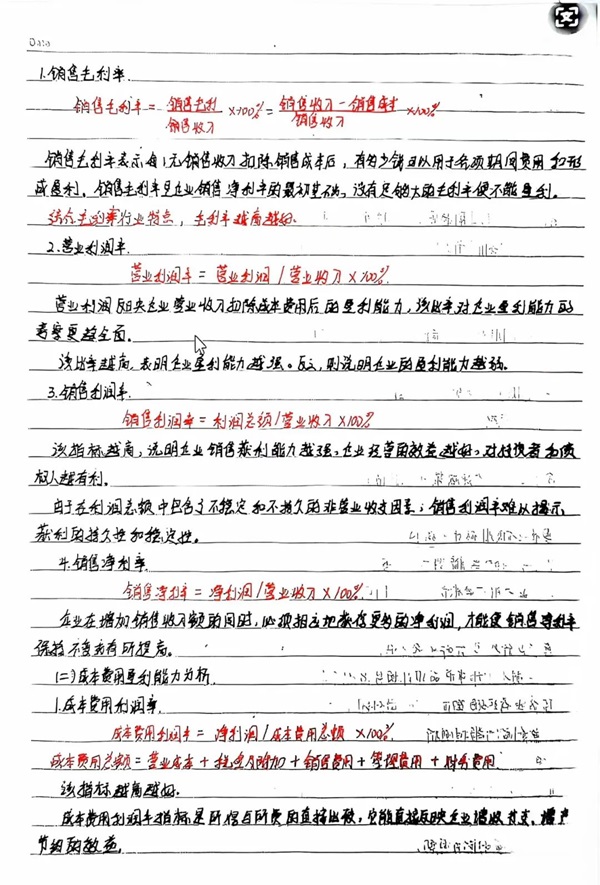 Date
1.销售毛利率.
销售毛利率 = 销售毛利/销售收入 ×100% = 销售收入-销售成本/销售收入 ×100%
销售毛利率表示每1元销售收入扣除销售成本后,有多少钱可以用于各项期间费用和形
成盈利。销售毛利率是企业销售净利率的最初基础,没有足够大的毛利率便不能盈利。
结合毛利率行业特点,毛利率越高越好.
2.营业利润率.
营业利润率 = 营业利润 / 营业收入 ×100%.
营业利润反映企业营业收入扣除成本费用后的盈利能力,该比率对企业盈利能力的
考察更趋全面。
该比率越高,表明企业盈利能力越强。反之,则说明企业的盈利能力越弱。
3.销售利润率.
销售利润率 = 利润总额/营业收入 ×100%
该指标越高,说明企业销售获利能力越强,企业经营的效益越好,对投资者和债
权人越有利。
由于在利润总额中包含了不稳定和不持久的非营业收支因素;销售利润率难以揭示
获利的持久性和稳定性。
4.销售净利率.
销售净利率 = 净利润/营业收入 ×100%.
企业在增加销售收入额的同时,必须相应地获得更多的净利润,才能使销售净利率
保持不变或有所提高。
(二)成本费用盈利能力分析.
1.成本费用利润率.
成本费用利润率 = 净利润/成本费用总额 ×100%.
成本费用总额 = 营业成本 + 税金及附加 + 销售费用 + 管理费用 + 财务费用.
该指标越高越好.
成本费用利润率指标是所得与所费的直接比较,它能直接反映企业增收节支、增产
节约的效益.